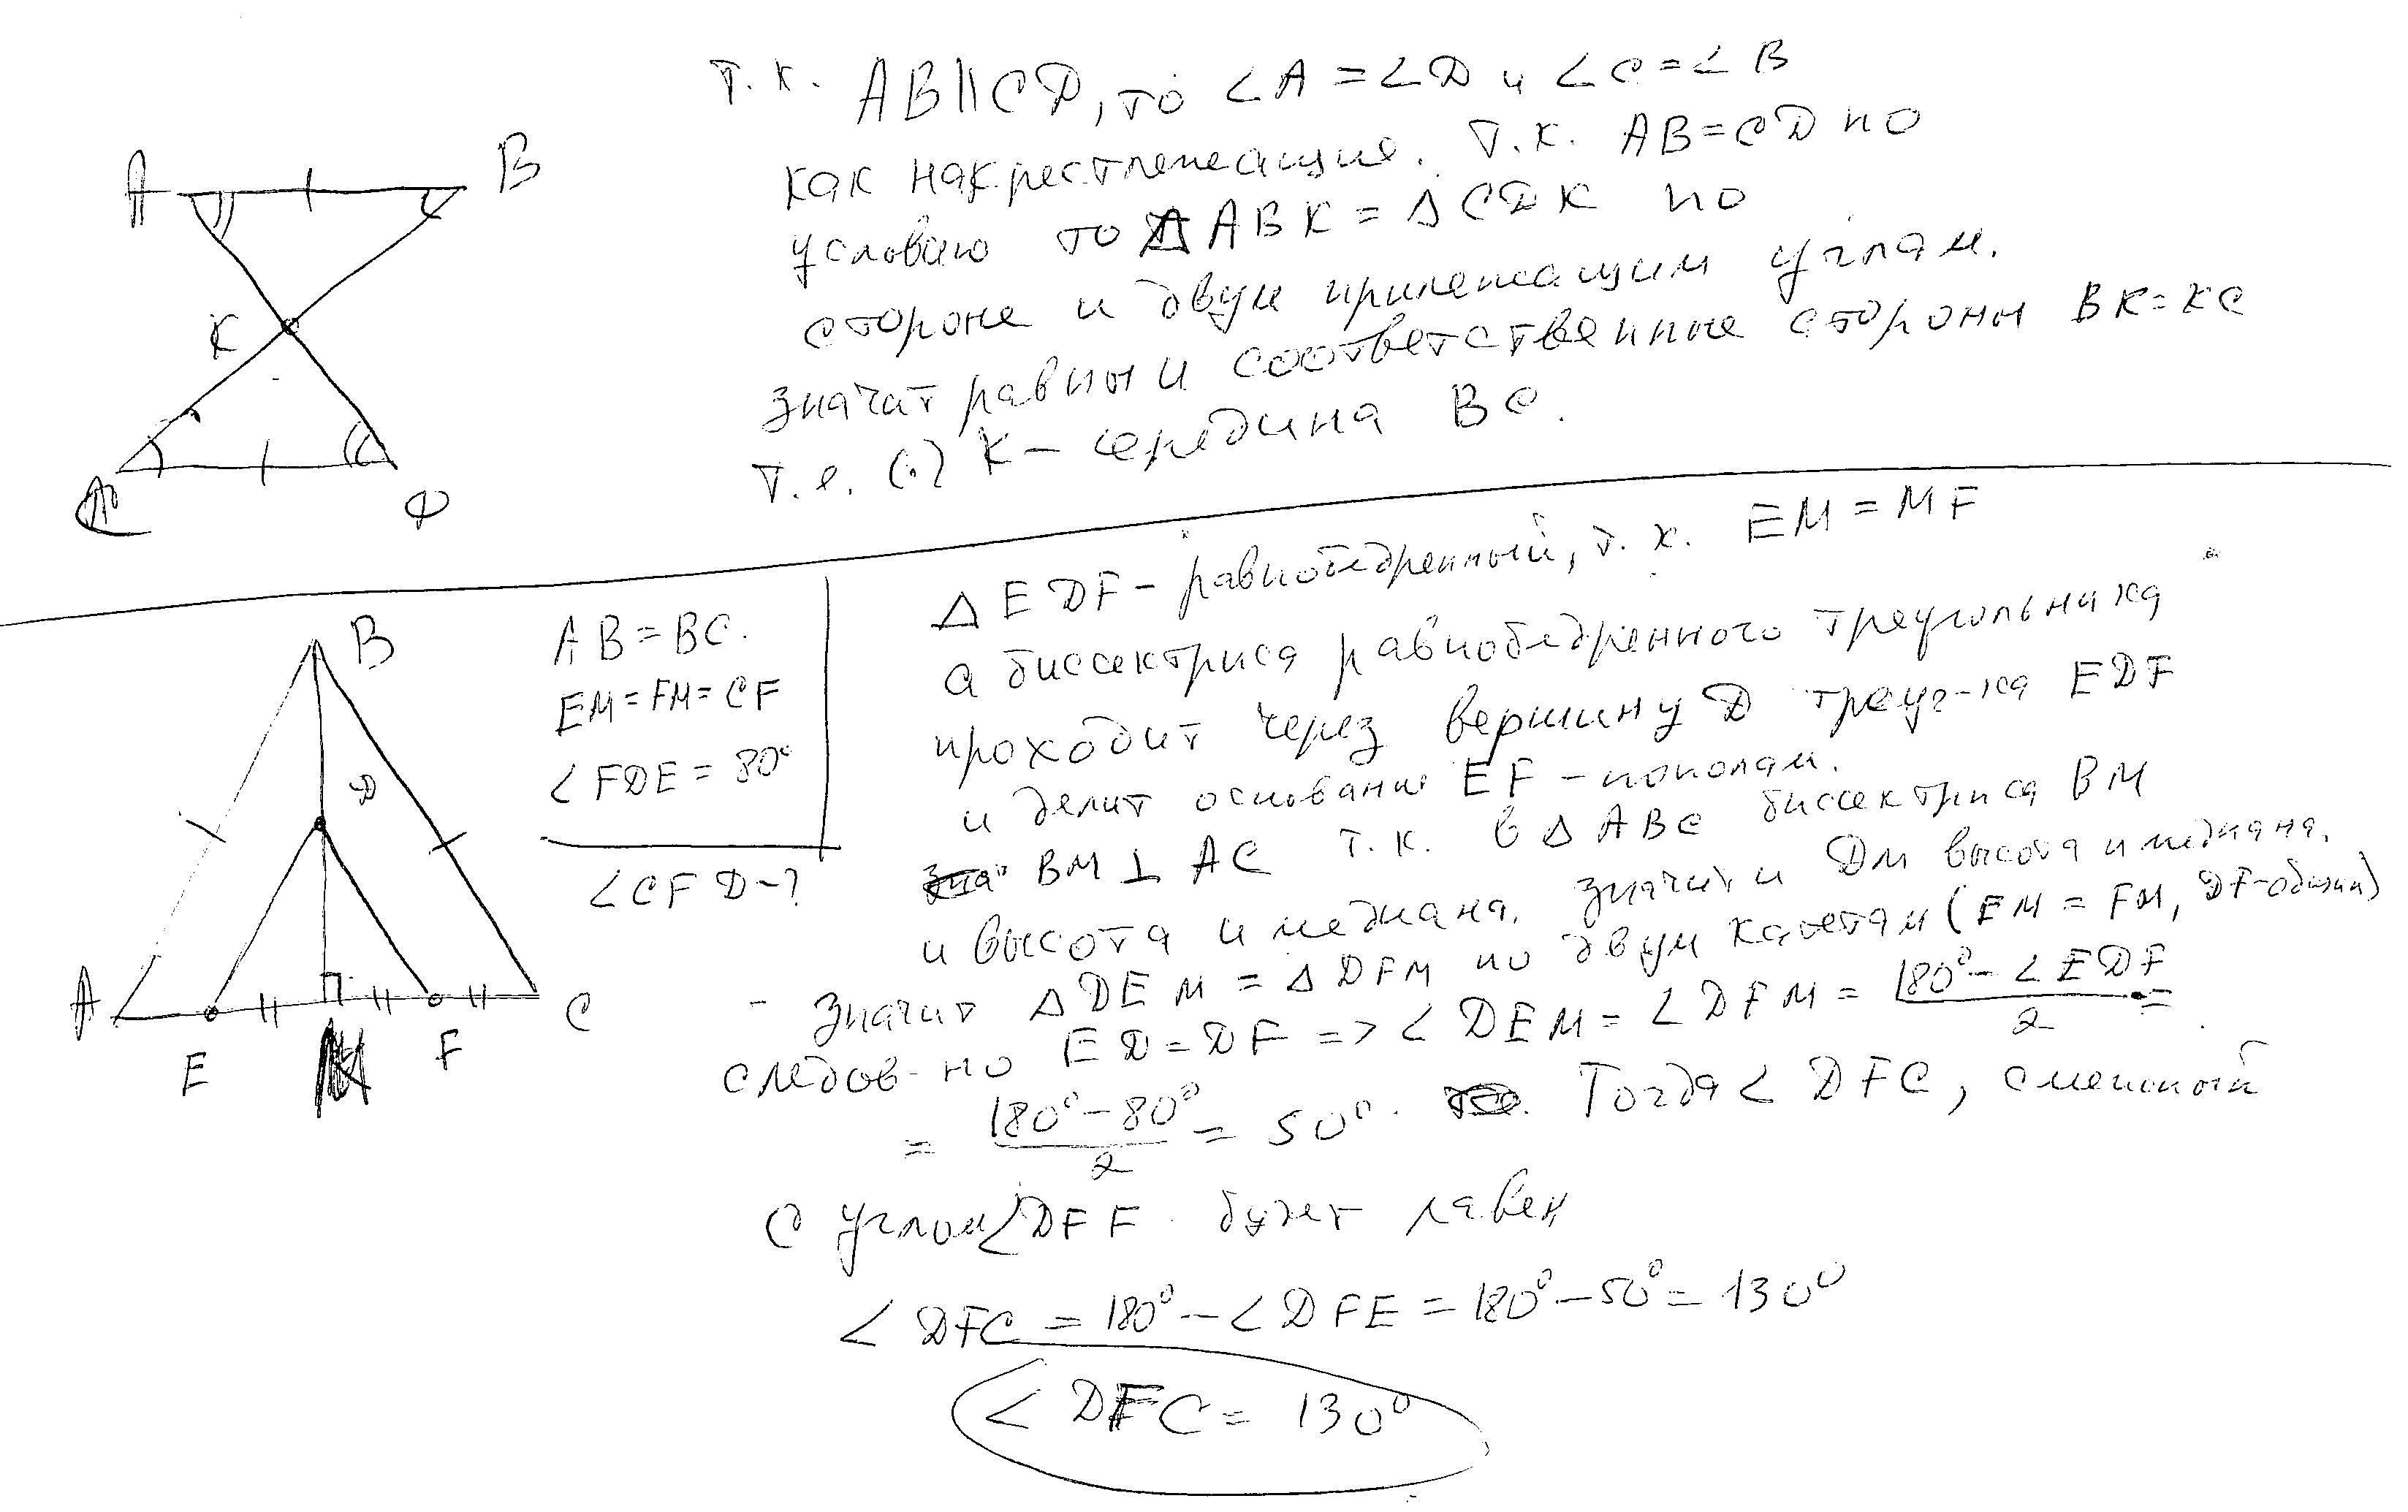 т.к. AB||CD, то ∠A = ∠D и ∠C = ∠B
как накрестлежащие. Т.к. AB = CD по
условию то △ABK = △CDK по
стороне и двум прилежащим углам.
значит равны и соответственные стороны BK = KC
т.е. (·) K – середина BC.
A
B
K
C
D
△EDF – равнобедренный, т.к. EM = MF
а биссектриса равнобедренного треугольника
проходит через вершину D треуг-ка EDF
и делит основание EF – пополам.
BM ⊥ AC т.к. в △ABC биссектриса BM
и высота и медиана. значит и DM высота и медиана.
– значит △DEM = △DFM по двум катетам (EM = FM, DF – общий)
следов-но ED = DF => ∠DEM = ∠DFM = (180° – ∠EDF)/2 =
= (180° – 80°)/2 = 50°. Тогда ∠DFC, смежный
с углом ∠DFF будет равен
∠DFC = 180° – ∠DFE = 180° – 50° = 130°
∠DFC = 130°
AB = BC.
EM = FM = CF
∠FDE = 80°
∠CFD – ?
B
D
A
E
M
F
C